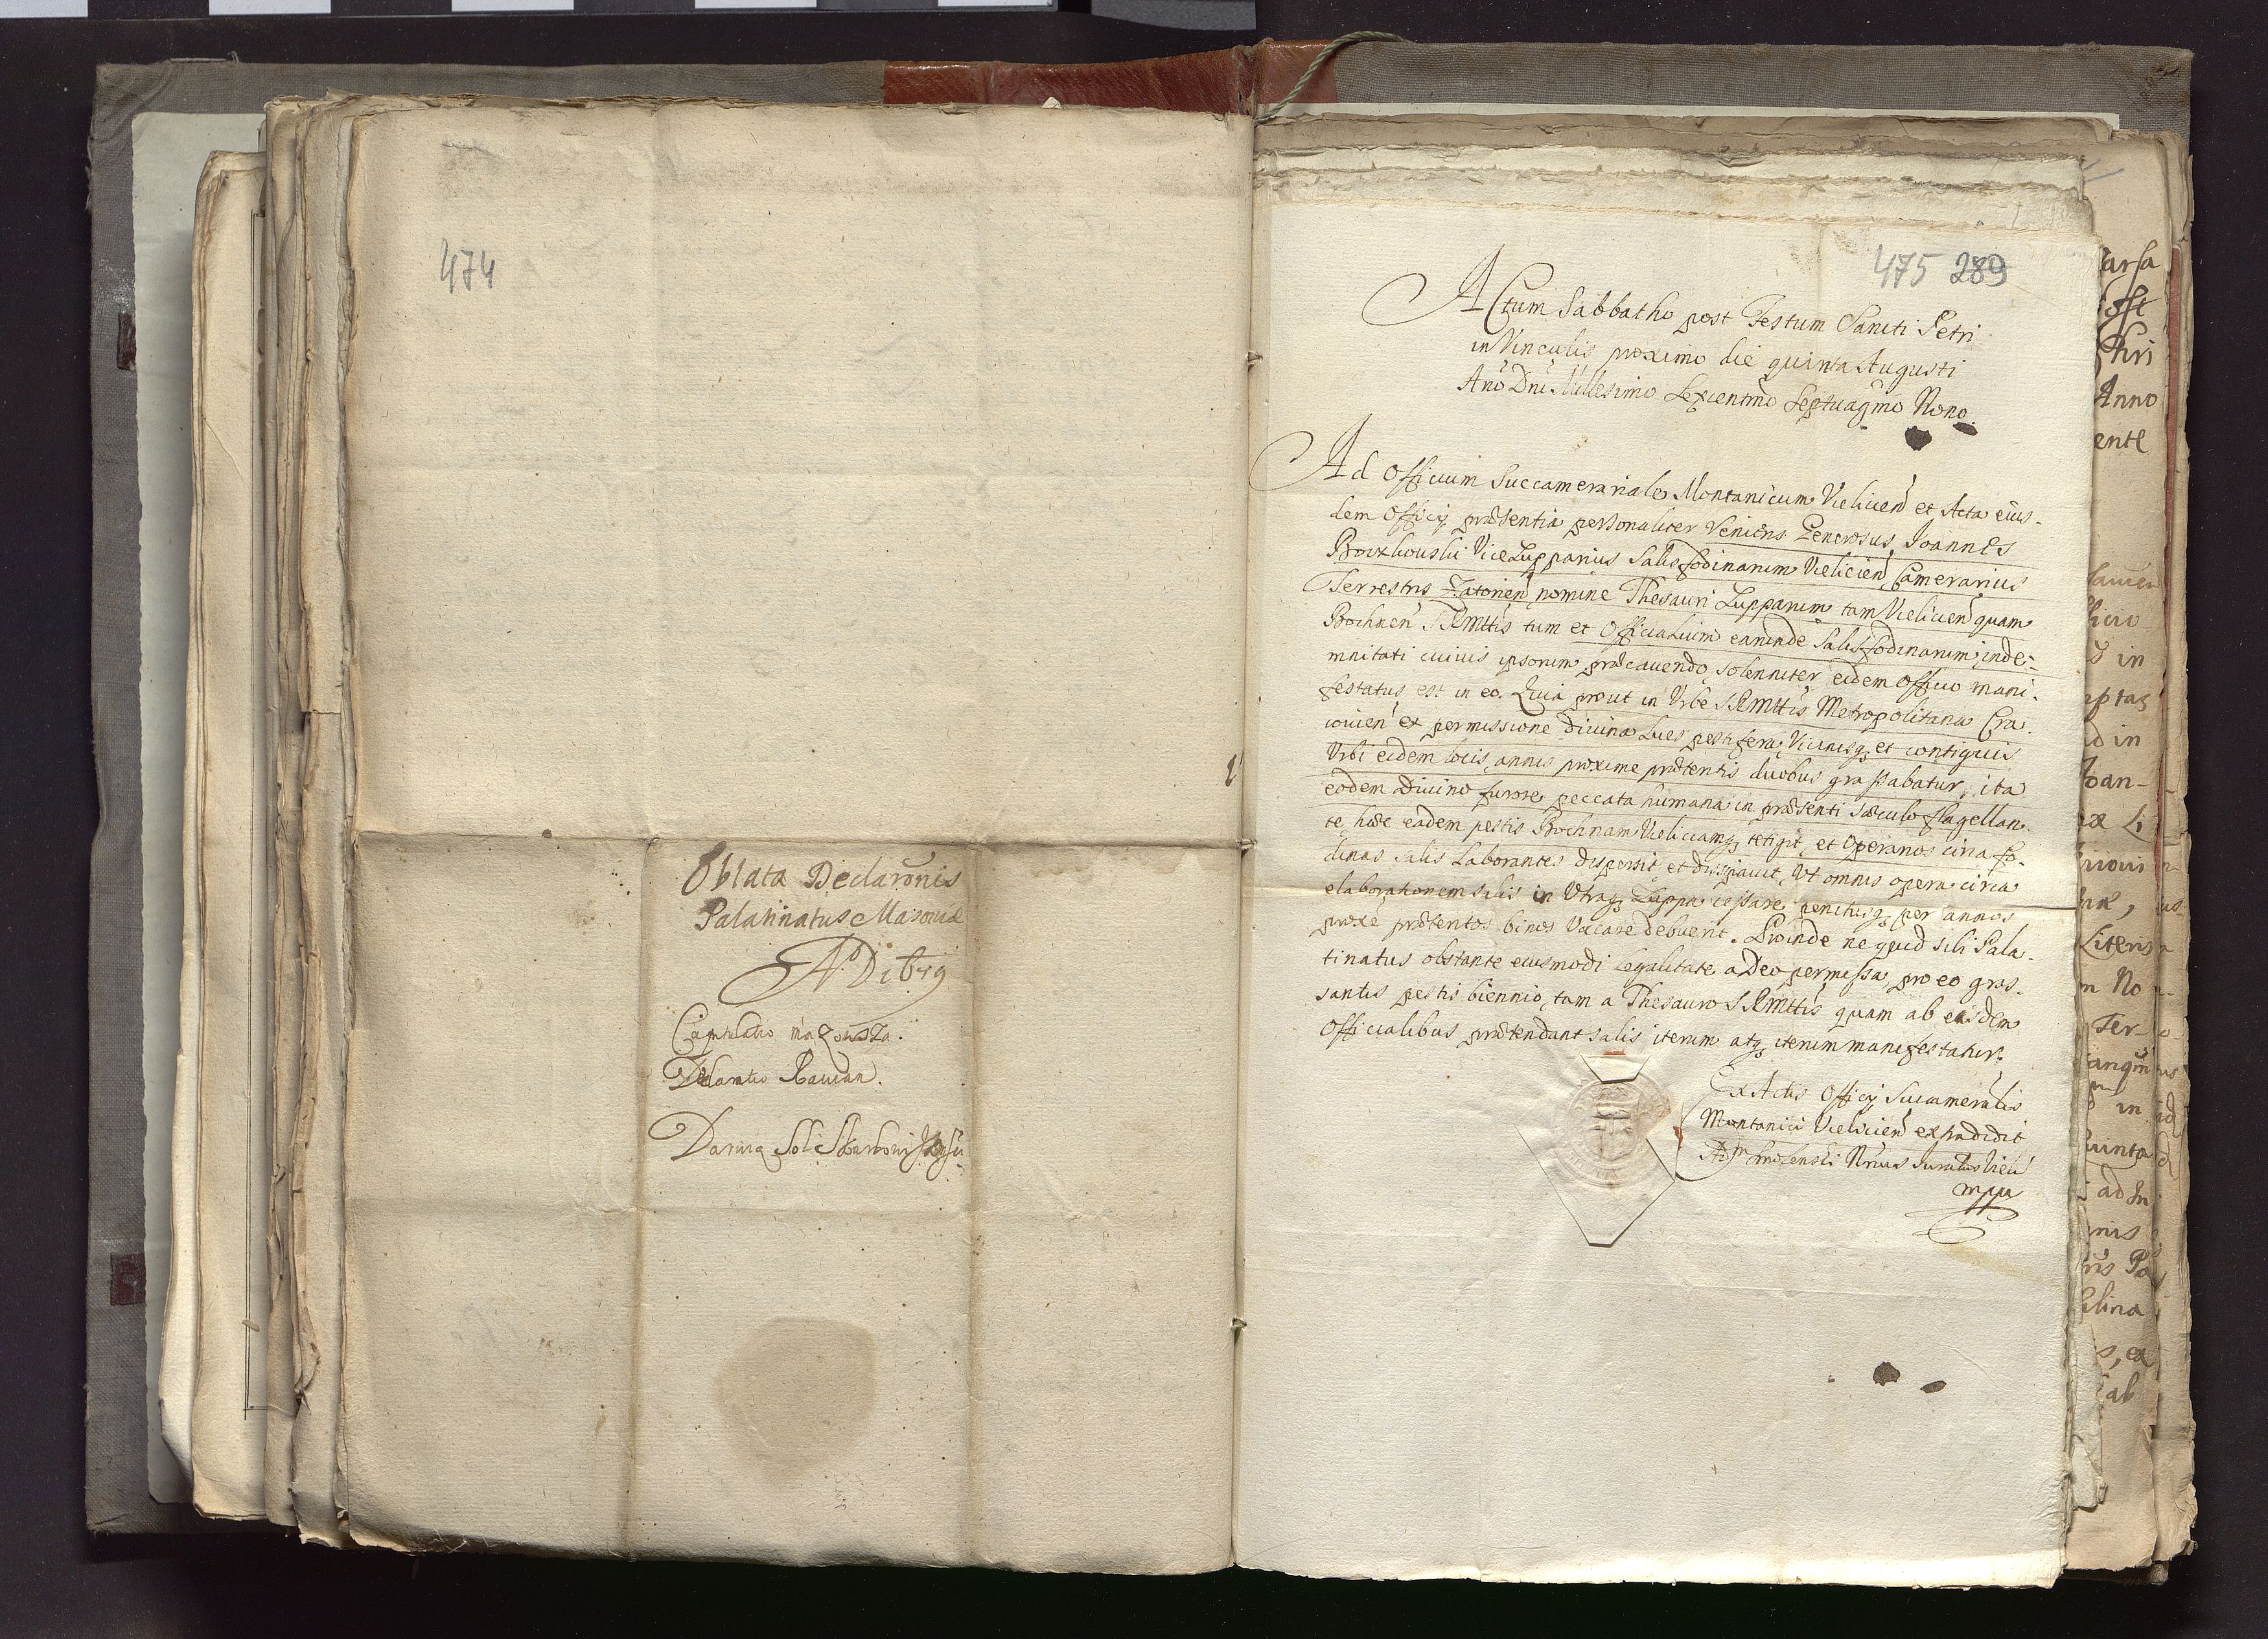 474
Oblata Declarōnis
Palatinatus Masoviæ
Capitulatio
Declaratio Ravien.
Daruią Soli
475 289
Actum Sabbatho post Festum Sancti Petri
in Vinculis proximo die quinta Augusti
Anō Dnī Millesimo Sexcentmō Septuagmō Nono
Ad Officium Succamerariale Montanicum Vielicien et Acta eius-
dem Officij præsentia personaliter Veniens Generosus Joannes
ViceZupparius Salisfodinarum Vielicien, Camerarius
Terrestris Zatorien nomine Thesauri Zupparum tam Vielicien quam
Bochnen SRMttis tum et Officialium earunde Salisfodinarum, inde-
mnitati cuiuis ipsorum præcavendo, solenniter eidem Officio mani-
festatus est in eo. Quia prout in Urbe SRMttis Metropolitana Cra-
covien ex permissione Divina Lues pestifera, Vicinisq et contiguis
Urbi eidem locis, annis proxime præteritis duobus grassabatur, ita
eodem Divino furore peccata humana in præsenti sæculo flagellan-
te hæc eadem pestis Bochnam Vieliciamq tetigit, et Operarios circa fo-
dinas salis Laborantes dispersit, et dissipavit, Ut omnis opera circa
elaborationem salis in Utraq Zuppa cessare penitusq per annos
proxe præteritos binos Vacare debuerit. Proinde ne quid sibi Pala-
tinatus obstante eiusmodi legalitate a Deo permissa, pro eo gras-
santis pestis biennio, tam a Thesauro SRMttis quam ab eisdem
Officialibus prætendant salis iterum atq iterum manifestatur.
Ex Actis Officij Succameralis
Montanici Vielicien extradidit
Juratus
mppa
arsa
ost
Anno
ente
in
ptas
d in
oan-
Literis
m No
Ter-
in
unta
ad
nis
lina
ab